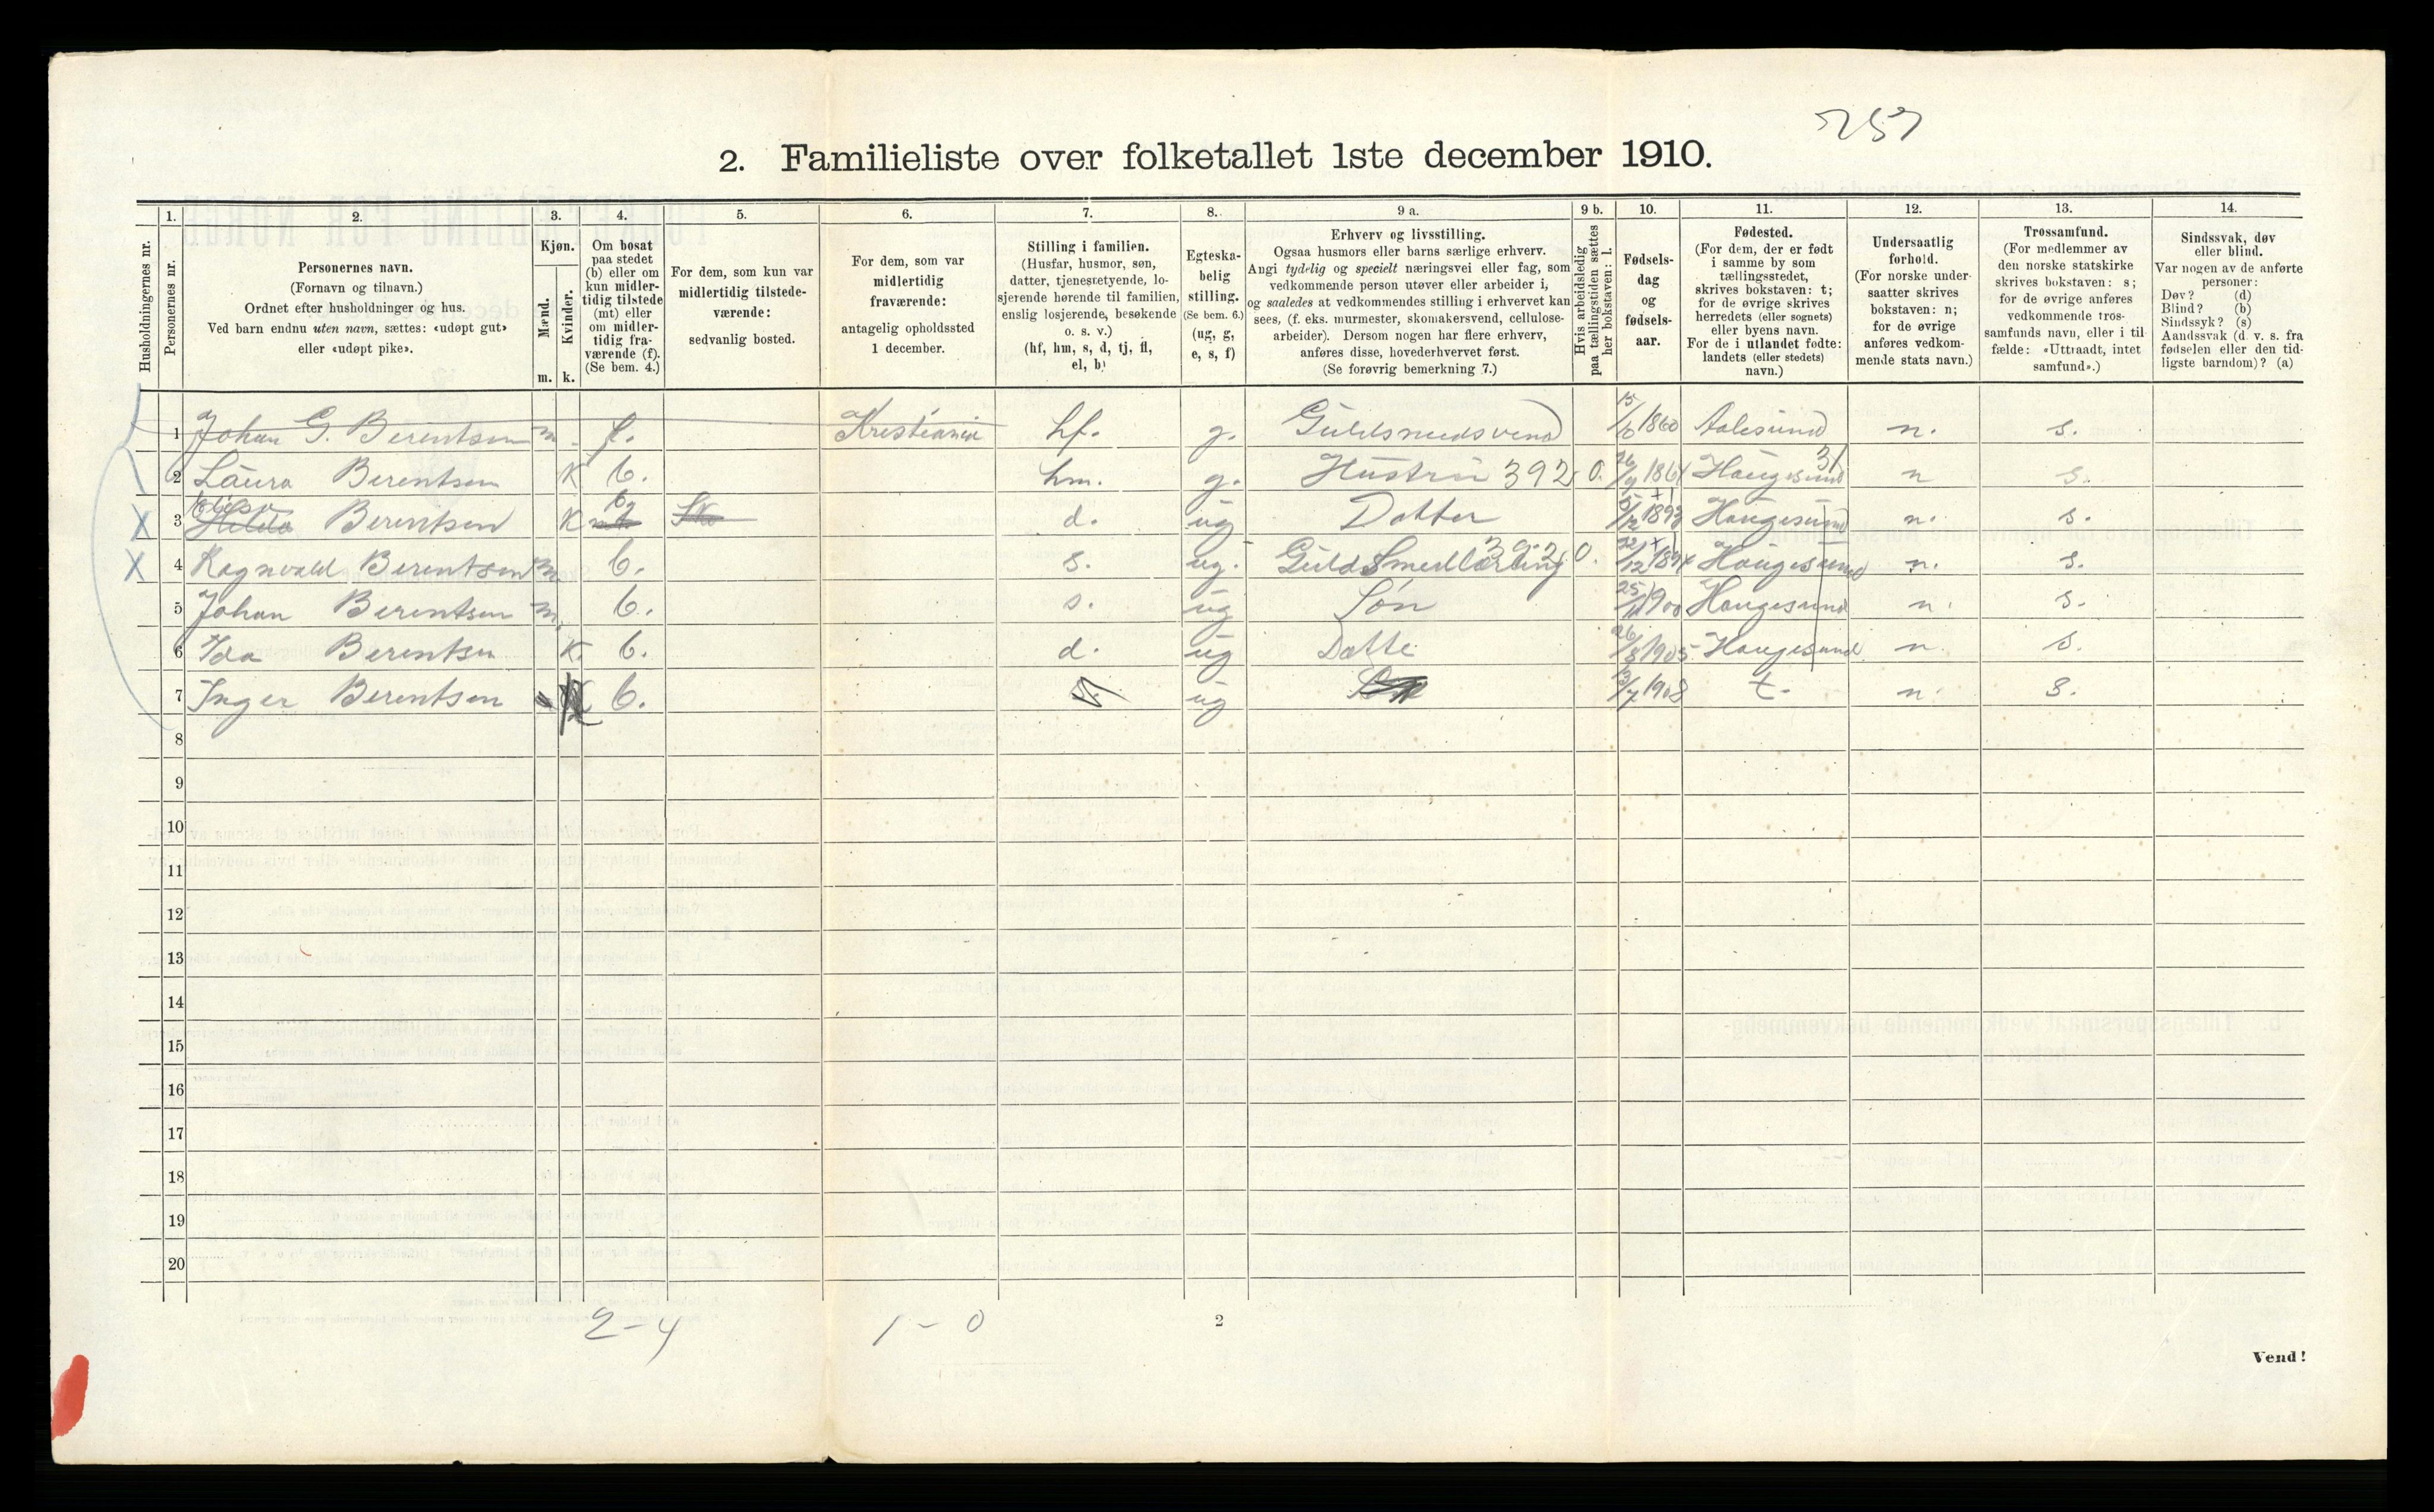 257
2. Familieliste over folketallet 1ste december 1910.
Husholdningernes nr.
1. Personernes nr.
2. Personernes navn.
(Fornavn og tilnavn.)
Ordnet efter husholdninger og hus.
Ved barn endnu uten navn, sættes: «udøpt gut»
eller «udøpt pike».
3. Kjøn.
Mænd. m.
Kvinder. k.
4. Om bosat
paa stedet
(b) eller om
kun midler-
tidig tilstede
(mt) eller
om midler-
tidig fra-
værende (f).
(Se bem. 4.)
5. For dem, som kun var
midlertidig tilstede-
værende:
sedvanlig bosted.
6. For dem, som var
midlertidig
fraværende:
antagelig opholdssted
1 december.
7. Stilling i familien.
(Husfar, husmor, søn,
datter, tjenestetyende, lo-
sjerende hørende til familien,
enslig losjerende, besøkende
o. s. v.)
(hf, hm, s, d, tj, fl,
el, b)
8. Egteska-
belig
stilling.
(Se bem. 6.)
(ug, g,
e, s, f)
9 a. Erhverv og livsstilling.
Ogsaa husmors eller barns særlige erhverv.
Angi tydelig og specielt næringsvei eller fag, som
vedkommende person utøver eller arbeider i,
og saaledes at vedkommendes stilling i erhvervet kan
sees, (f. eks. murmester, skomakersvend, cellulose-
arbeider). Dersom nogen har flere erhverv,
anføres disse, hovederhvervet først.
(Se forøvrig bemerkning 7.)
9 b. Hvis arbeidsledig
paa tællingstiden sættes
her bokstaven: l.
10. Fødsels-
dag
og
fødsels-
aar.
11. Fødested.
(For dem, der er født
i samme by som
tællingsstedet,
skrives bokstaven: t;
for de øvrige skrives
herredets (eller sognets)
eller byens navn.
For de i utlandet fødte:
landets (eller stedets)
navn.)
12. Undersaatlig
forhold.
(For norske under-
saatter skrives
bokstaven: n;
for de øvrige
anføres vedkom-
mende stats navn.)
13. Trossamfund.
(For medlemmer av
den norske statskirke
skrives bokstaven: s;
for de øvrige anføres
vedkommende tros-
samfunds navn, eller i til-
fælde: «Uttraadt, intet
samfund».)
14. Sindssvak, døv
eller blind.
Var nogen av de anførte
personer:
Døv? (d)
Blind? (b)
Sindssyk? (s)
Aandssvak (d. v. s. fra
fødselen eller den tid-
ligste barndom)? (a)
1 Johan G. Berentsen m f. Kristiania hf. g. Guldsmedsvend 1860 Aalesund n. s.
2 Laura Berentsen K b. hm. g. Hustru 392 0. 1861 Haugesund 31 n s.
3 Berentsen K b d. ug Datter 1893 Haugesund n. s.
4 Ragnvald Berentsen m b. s. ug. Guldsmedlærling 392 0. 22/12 1894 Haugesund n. s.
5 Johan Berentsen m. b. s. ug Søn 25/11 1900 Haugesund n. s.
6 Ida Berentsen K. b. d. ug Datte 26/8 1905 Haugesund n. s.
7 Inger Berentsen b. ug 13/7 1908 t. n. s.
8
9
10
11
12
13
14
15
16
17
18
19
20
2-4 1-0
2
Vend!